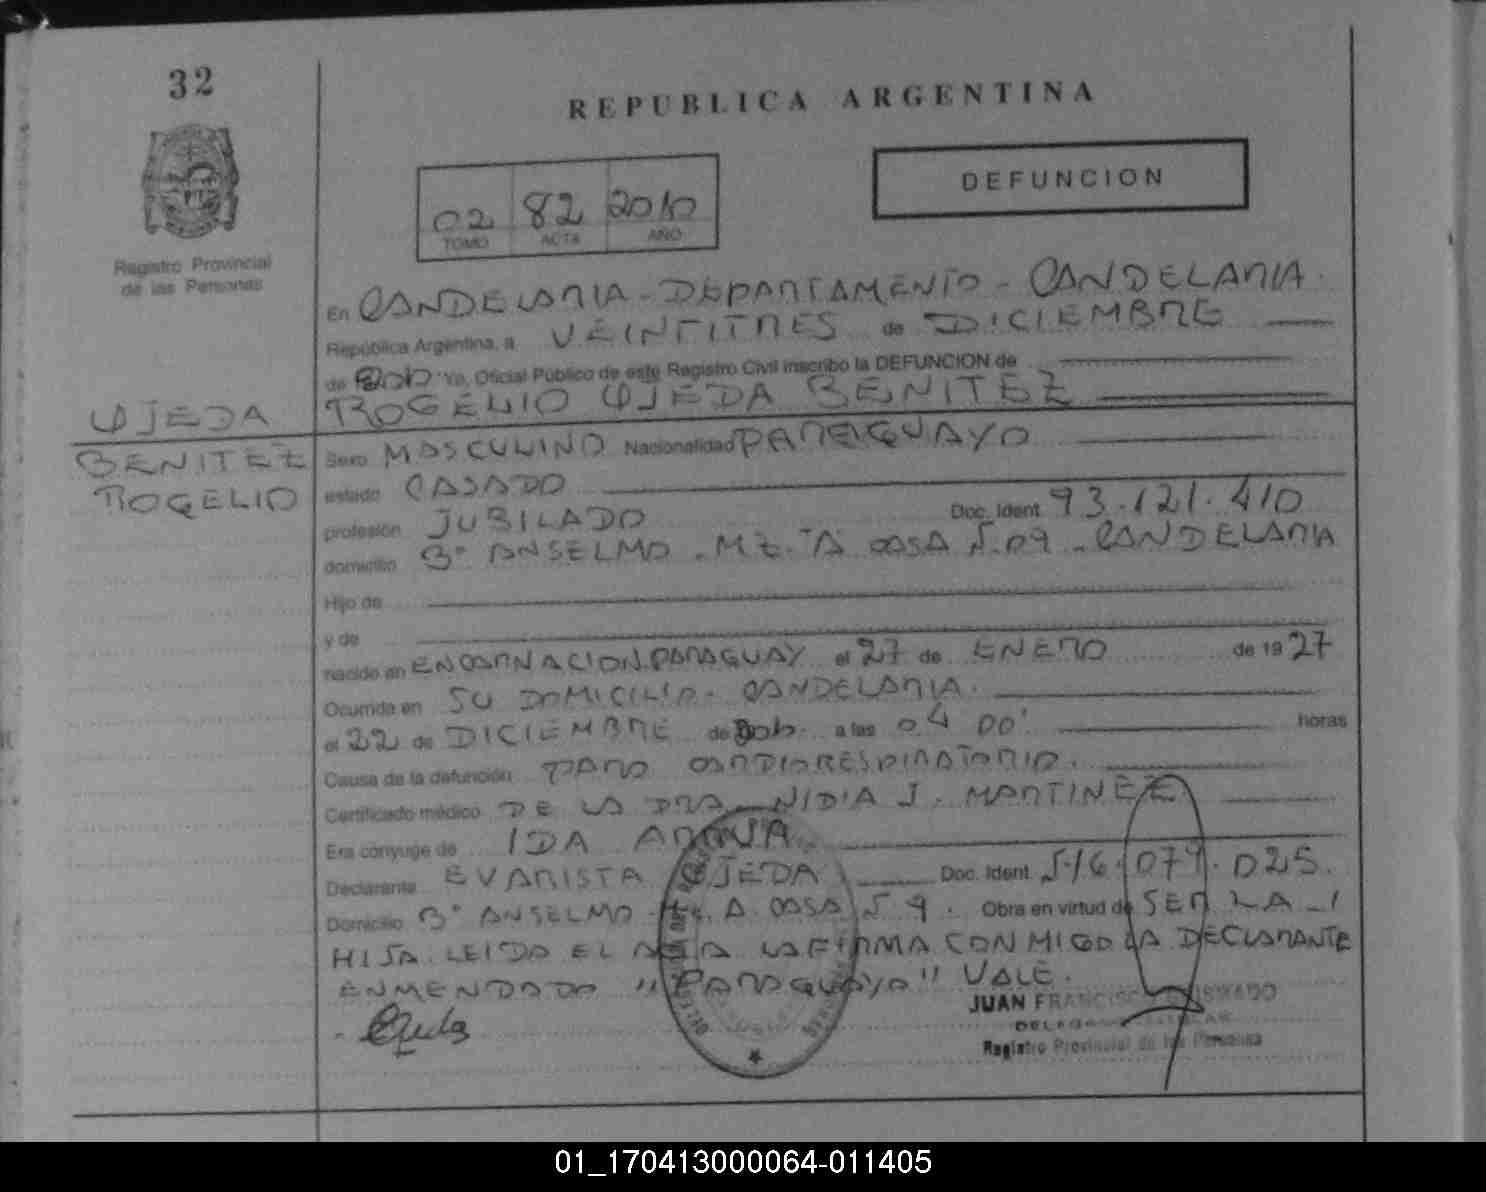 32
REPUBLICA ARGENTINA
DEFUNCION
02 82 2010
TOMO ACTA AÑO
Registro Provincial
de las Personas
En CANDELARIA - DEPARTAMENTO - CANDELARIA.
República Argentina, a VEINTITRES de DICIEMBRE
de 2010 Yo, Oficial Público de este Registro Civil inscribo la DEFUNCION de
ROGELIO OJEDA BENITEZ
OJEDA
BENITEZ
ROGELIO
Sexo MASCULINO Nacionalidad PARAGUAYO
estado CASADO
profesión JUBILADO Doc. Ident. 93.121.410
domicilio Bº ANSELMO - MZ. "A CASA 5.09 - CANDELARIA
Hijo de
y de
nacido en ENCARNACION.PARAGUAY el 27 de ENERO de 19 27
Ocurrida en SU DOMICILIO - CANDELARIA.
el 22 de DICIEMBRE de 2010 a las 04 00' horas
Causa de la defunción PARO CARDIORESPIRATORIO.
Certificado médico DE LA DRA. NIDIA J. MARTINEZ
Era cónyuge de IDA
Declarante EVARISTA OJEDA Doc. Ident.
Domicilio Bº ANSELMO - A CASA 5 9. Obra en virtud de SER LA
HIJA. LEIDA EL ACTA LA FIRMA CONMIGO LA DECLARANTE
ENMENDADO "PARAGUAYO" VALE.
JUAN FRANCISCO
Registro Provincial de las Personas
01_170413000064-011405